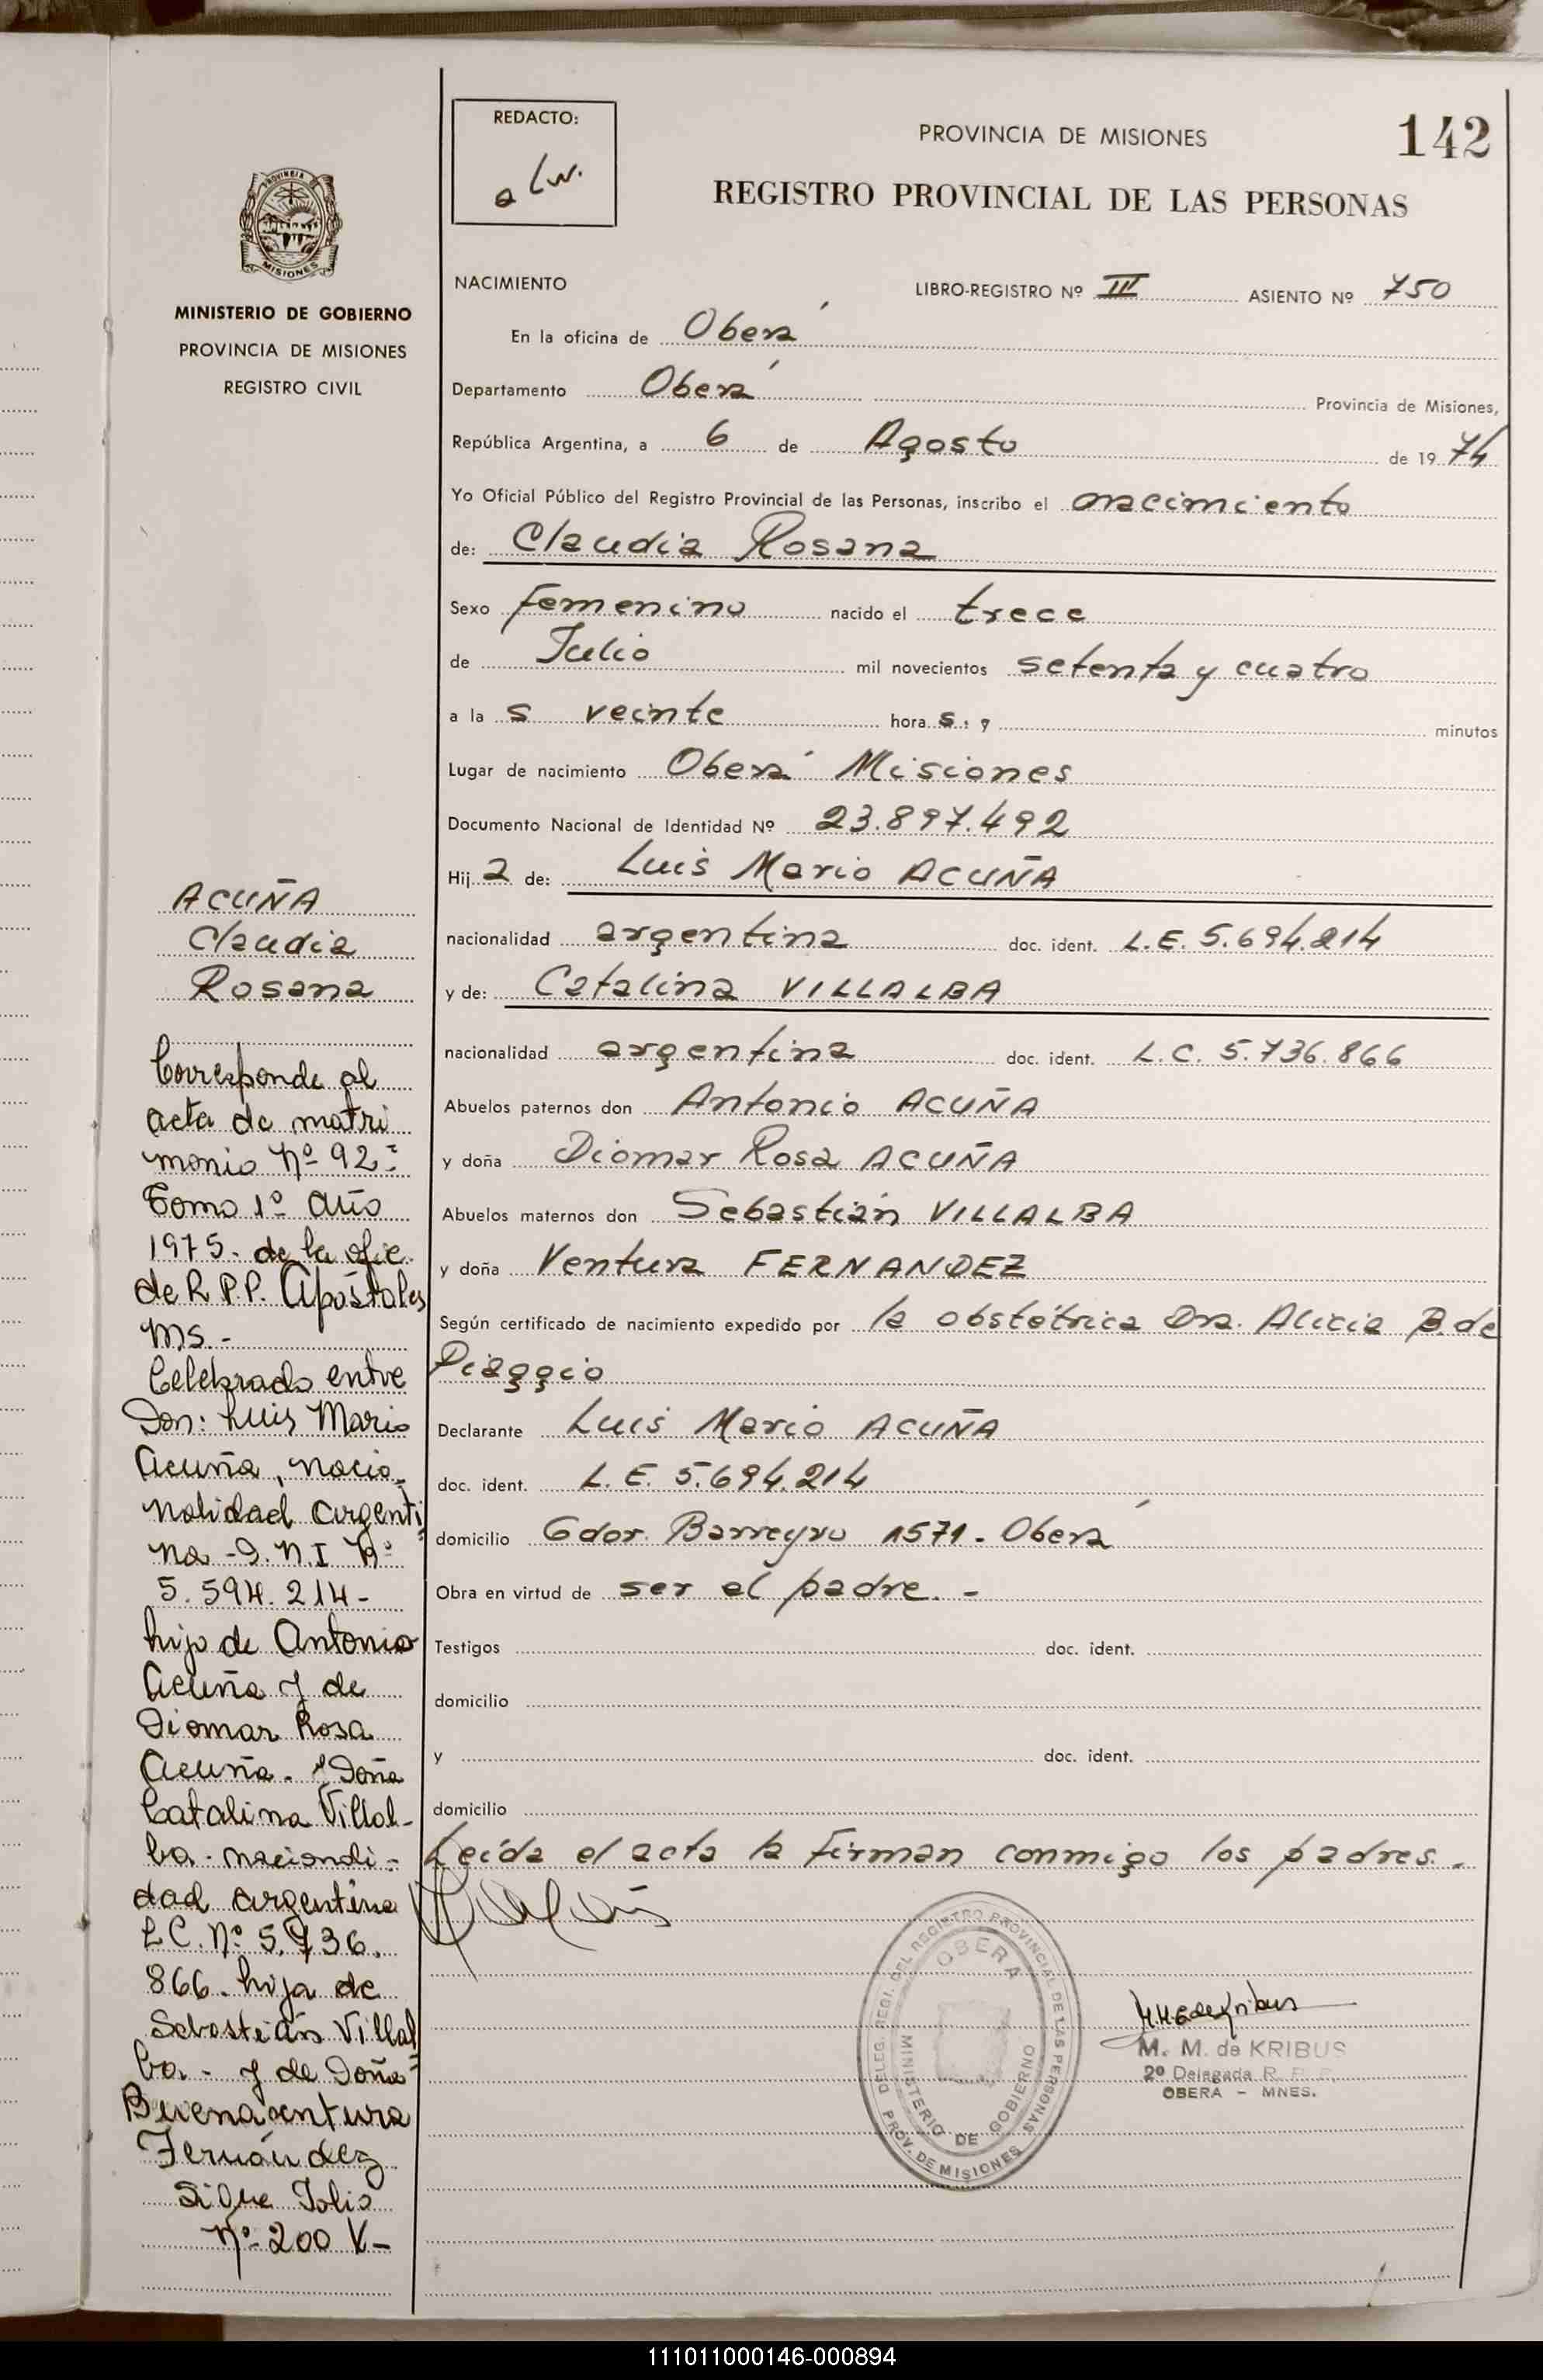 REDACTO:
PROVINCIA DE MISIONES
142
REGISTRO PROVINCIAL DE LAS PERSONAS
PROVINCIA
MISIONES
MINISTERIO DE GOBIERNO
PROVINCIA DE MISIONES
REGISTRO CIVIL
NACIMIENTO LIBRO-REGISTRO Nº III ASIENTO Nº 750
En la oficina de Oberá
Departamento Oberá Provincia de Misiones,
República Argentina, a 6 de Agosto de 1974
Yo Oficial Público del Registro Provincial de las Personas, inscribo el nacimiento
de: Claudia Rosana
Sexo femenino nacido el trece
de Julio mil novecientos setenta y cuatro
a la s veinte hora s., minutos
Lugar de nacimiento Oberá Misiones
Documento Nacional de Identidad Nº 23.897.492
Hij a de: Luis Mario ACUÑA
nacionalidad argentina doc. ident. L.E. 5.694.214
y de: Catalina VILLALBA
nacionalidad argentina doc. ident. L.C. 5.736.866
Abuelos paternos don Antonio ACUÑA
y doña Diomar Rosa ACUÑA
Abuelos maternos don Sebastián VILLALBA
y doña Ventura FERNANDEZ
Según certificado de nacimiento expedido por la obstétrica Dra. Alicia B. de
Piaggio
Declarante Luis Mario ACUÑA
doc. ident. L.E. 5.694.214
domicilio Gdor. Barreyro 1571 - Oberá
Obra en virtud de ser el padre. -
Testigos doc. ident.
domicilio
y doc. ident.
domicilio
Leída el acta la firman conmigo los padres. -
DELEG. REGI. DEL REGISTRO PROVINCIAL DE LAS PERSONAS
OBERA
MINISTERIO DE GOBIERNO
PROV. DE MISIONES
M. M. de KRIBUS
2º Delegada R. P. P.
OBERA - MNES.
ACUÑA
Claudia
Rosana
Corresponde al
acta de matri
monio Nº 92-
Tomo 1º año
1975. de la ofic.
de R.P.P. Apóstoles
Ms. -
Celebrado entre
Don: Luis Mario
Acuña, nacio-
nalidad argenti-
na - D.N.I Nº
5.594.214-
hijo de Antonio
Acuña y de
Diomar Rosa
Acuña. y Doña
Catalina Villal-
ba. naciondi-
dad argentina
L.C. Nº 5.736.
866. hija de
Sebastián Villal-
ba. - y de Doña
Buenaventura
Fernández
Sigue Folio
Nº 200 V-
111011000146-000894